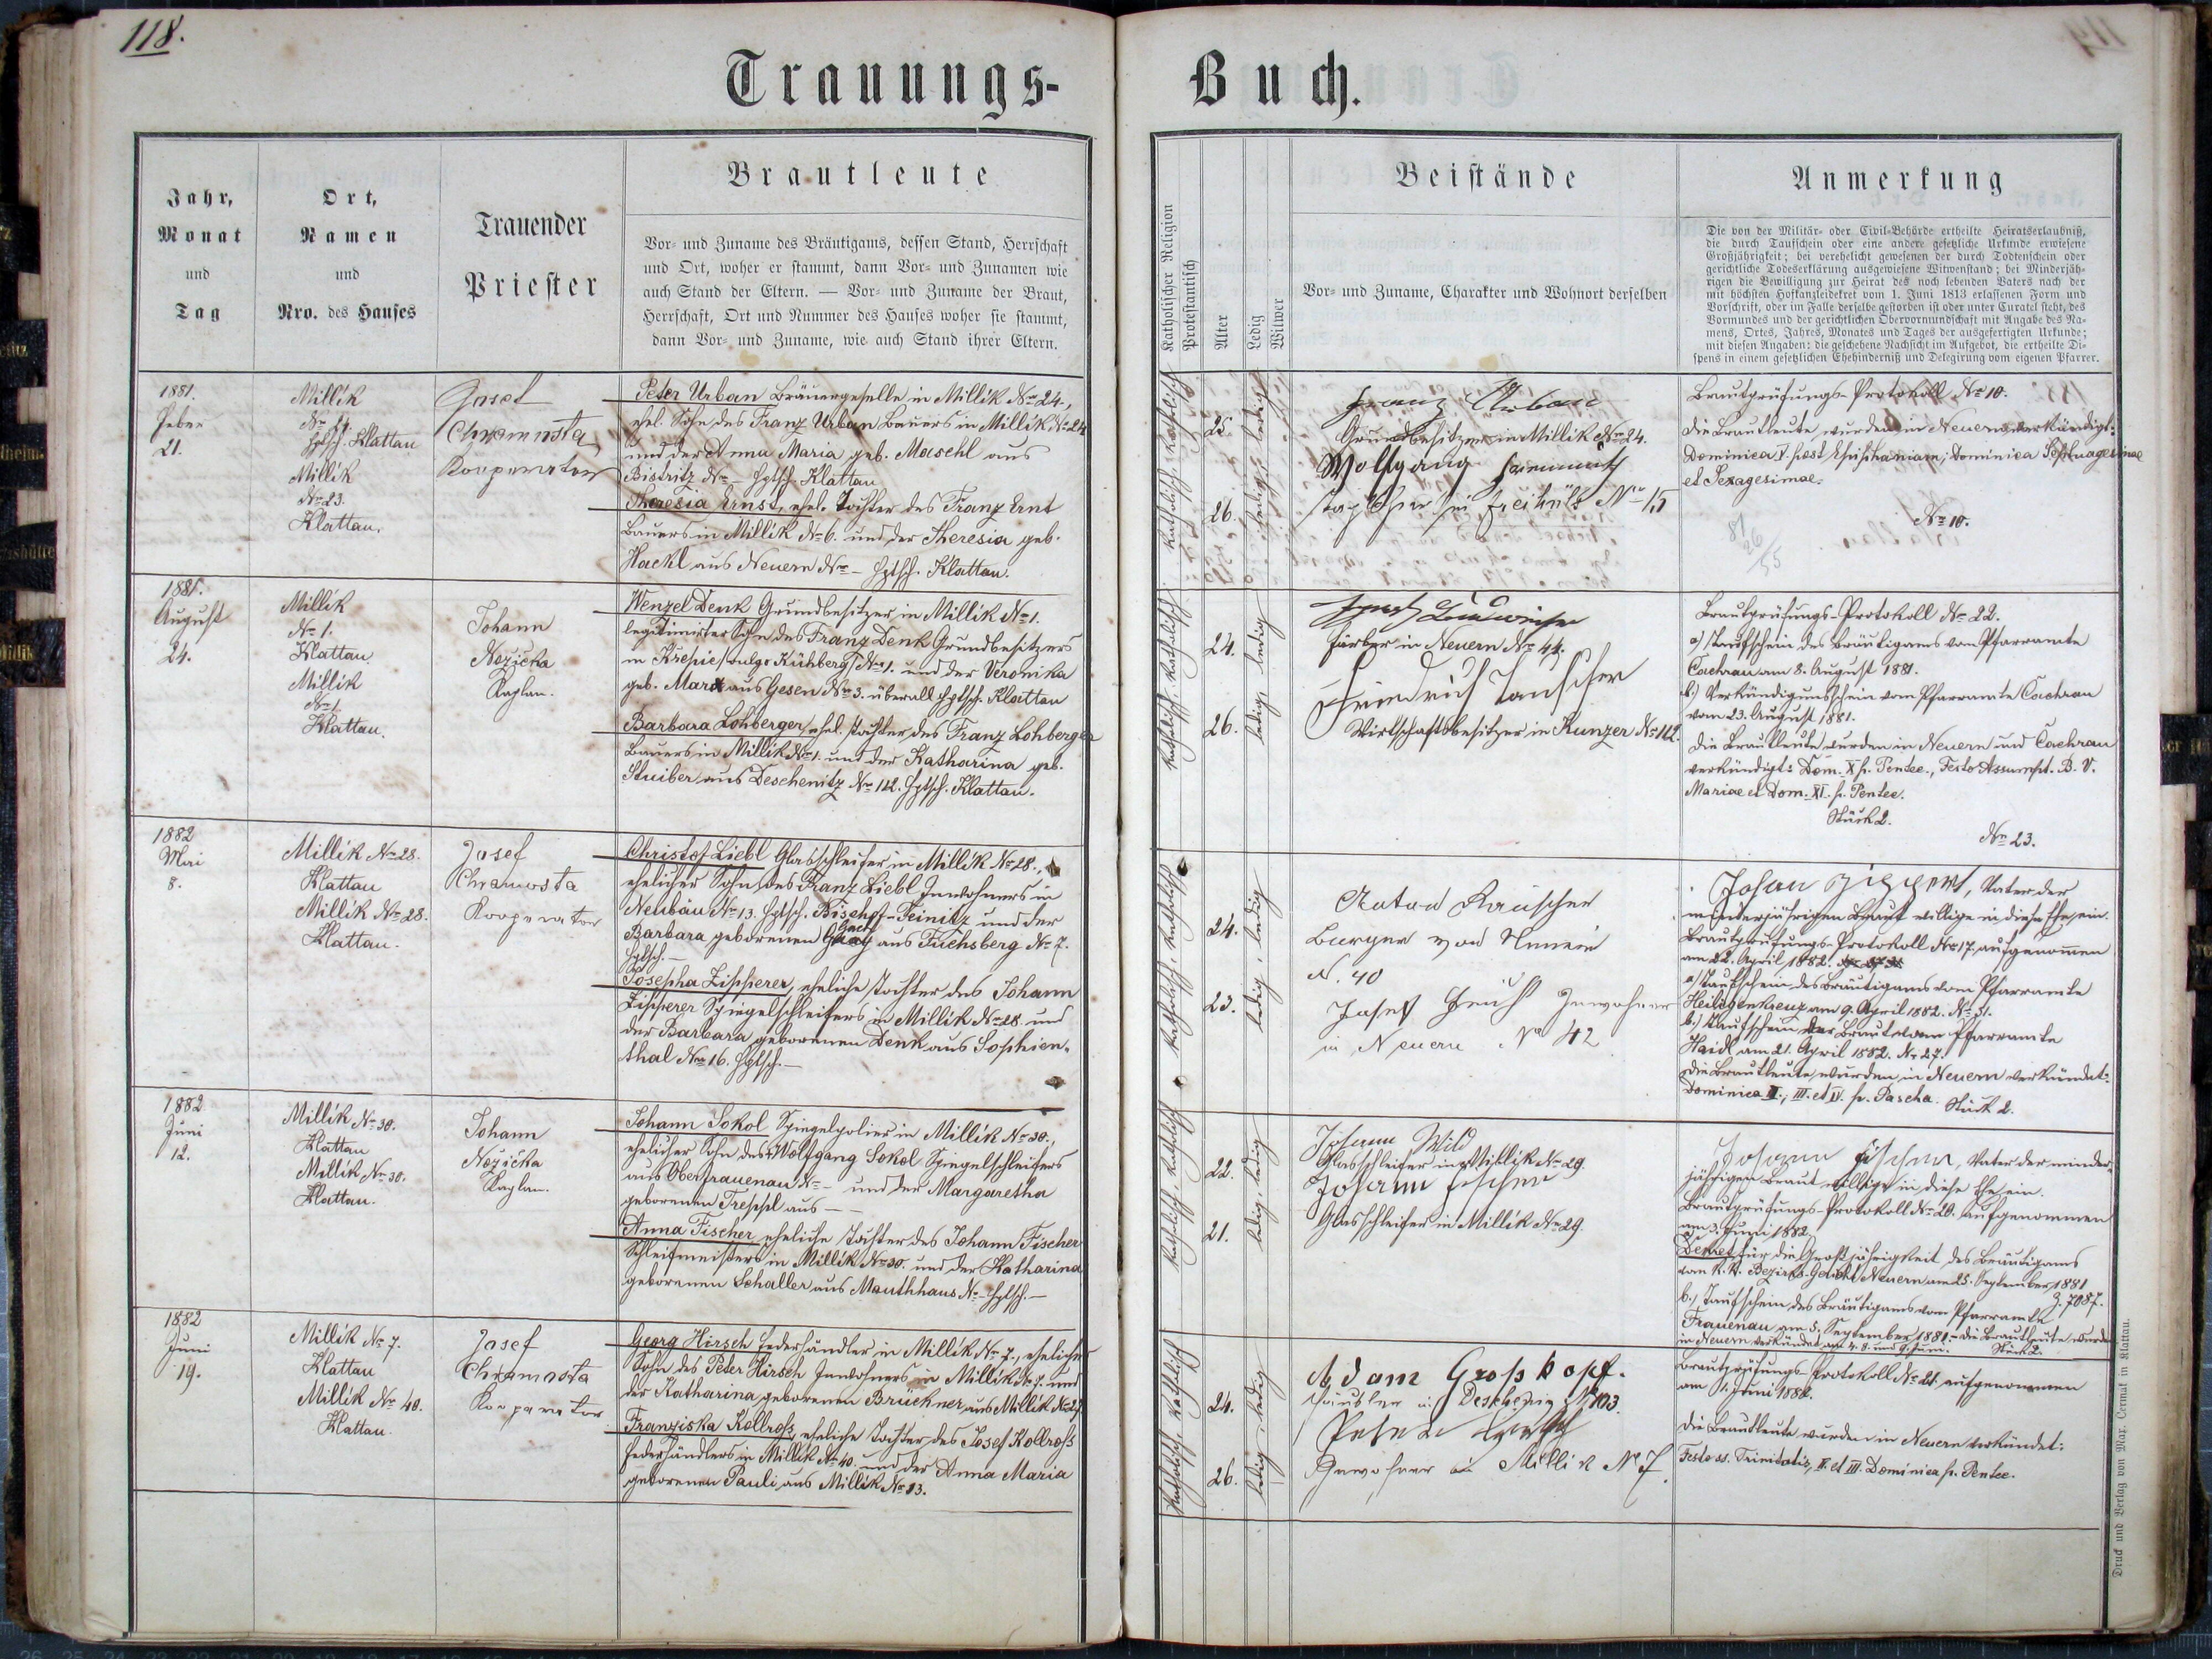 118.
Trauungs-
Buch.
Jahr,
Monat
und
Tag
Ort,
Namen
und
Nro. des Hauses
Trauender
Priester
Brautleute
Vor- und Zuname des Bräutigams, dessen Stand, Herrschaft
und Ort, woher er stammt, dann Vor- und Zunamen wie
auch Stand der Eltern. — Vor- und Zuname der Braut,
Herrschaft, Ort und Nummer des Hauses woher sie stammt,
dann Vor- und Zuname, wie auch Stand ihrer Eltern.
Katholischer Religion
Protestantisch
Alter
Ledig
Witwer
Beistände
Vor- und Zuname, Charakter und Wohnort derselben
Anmerkung
Die von der Militär- oder Civil-Behörde ertheilte Heiratserlaubniß,
die durch Taufschein oder eine andere gesetzliche Urkunde erwiesene
Großjährigkeit; bei verehelicht gewesenen der durch Todtenschein oder
gerichtliche Todeserklärung ausgewiesene Witwenstand; bei Minderjäh-
rigen die Bewilligung zur Heirat des noch lebenden Vaters nach der
mit höchsten Hofkanzleidekret vom 1. Juni 1813 erlassenen Form und
Vorschrift, oder im Falle derselbe gestorben ist oder unter Curatel steht, des
Vormundes und der gerichtlichen Obervormundschaft mit Angabe des Na-
mens, Ortes, Jahres, Monates und Tages der ausgefertigten Urkunde;
mit diesen Angaben: die geschehene Nachsicht im Aufgebot, die ertheilte Di-
spens in einem gesetzlichen Ehehinderniß und Delegirung vom eigenen Pfarrer.
1881.
Feber
21.
Millik
Hptsch. Klattau
Millik
No 23.
Klattau.
Josef
Chramosta
Kooperator
Peter Urban Bräuergeselle in Millik No 24.,
ehel. Sohn des Franz Urban Bauers in Millik No 24
und der Anna Maria geb. Maschl aus
Bistritz No – Hptsch. Klattau
Theresia Ernst, ehel. Tochter des Franz Ernt
Bauers in Millik No 6. und der Theresia geb.
Hackl aus Neuern No – Hptsch. Klattau.
katholisch, katholisch
25.
26.
ledig, ledig
Franz Urban
Grundbesitzer in Millik No 24.
Wolfgang
No 15
Brautprüfungs-Protokoll No 10.
Die Brautleute wurden in Neuern verkündigt:
Dominica V. post Epiphaniam, Dominica Septuagesimae
et Sexagesimae.
No 10.
1881.
August
24.
Millik
No 1.
Klattau
Millik
No 1.
Klattau.
Johann
Nožička
Kaplan.
Wenzel Denk Grundbesitzer in Millik No 1.
legitimirter Sohn des Franz Denk Grundbesitzers
in Křepic (vulgo Kühberg) No 1. und der Veronika
geb. Marx aus Gesen No 3. überall Hptsch. Klattau
Barbara Lohberger, ehel. Tochter des Franz Lohberger
Bauers in Millik No 1. und der Katharina geb.
Stuiber aus Deschenitz No 112. Hptsch. Klattau.
katholisch, katholisch
24.
26.
ledig, ledig
Färber in Neuern No 44.
Friedrich Tauscher
Wirtschaftsbesitzer in Kunzer No 112.
Brautprüfungs-Protokoll No 22.
a) Taufschein des Bräutigams vom Pfarramte
Cachrau am 8. August 1881.
b.) Verkündigungsschein vom Pfarramte Cachrau
vom 23. August 1881.
Die Brautleute wurden in Neuern und Cachrau
verkündigt: Dom. X p. Pentec., Festo Assumpt. B. V.
Mariae et Dom. XI. p. Pentec.
Stück 2.
No 23.
1882
Mai
8.
Millik No 28.
Klattau
Millik No 28.
Klattau.
Josef
Chramosta
Kooperator
Christof Liebl Glasschleifer in Millik No 28.,
ehelicher Sohn des Franz Liebl Inwohners in
Neubäu No 13. Hptsch. Bischof-Teinitz und der
Barbara geborenen aus Fuchsberg No 7.
Hptsch. –
Josepha Zipperer, eheliche Tochter des Johann
Zipperer Spiegelschleifers in Millik No 28. und
der Barbara geborenen Denk aus Sophien-
thal No 16. Hptsch. –
katholisch, katholisch
24.
23.
ledig, ledig
Anton Rauscher
Burger von Neuern
N. 40
Josef Inwohner
in Neuern No 42
Johan Zipperer, Vater der
minderjährigen Braut willige in diese Ehe ein.
Brautprüfungs-Protokoll No 17. aufgenommen
am 22. April 1882.
a) Taufschein des Bräutigams vom Pfarramte
Heiligenkreuz am 9. April 1882. No 31.
b.) Taufschein der Braut vom Pfarramte
Haidl am 21. April 1882. No 27.
Die Brautleute wurden in Neuern verkündet:
Dominica II., III. et IV. p. Pascha. Stück 2.
1882
Juni
12.
Millik No 30.
Klattau
Millik No 30.
Klattau.
Johann
Nožička
Kaplan.
Johann Sokol Spiegelpolier in Millik No 30.,
ehelicher Sohn des Wolfgang Sokol Spiegelschleifers
aus Oberfrauenau No – und der Margaretha
geborenen Treppl aus –
Anna Fischer, eheliche Tochter des Johann Fischer
Schleifmeisters in Millik No 30. und der Katharina
geborenen Schaller aus Mauthhaus No – Hptsch. –
katholisch, katholisch
22.
21.
ledig, ledig
Johann Wild
Glasschleifer in Millik No 29.
Johann Fischer
Glasschleifer in Millik No 29.
Johann Fischer, Vater der minder-
jährigen Braut willige in diese Ehe ein.
Brautprüfungs-Protokoll No 20. aufgenommen
am 3. Juni 1882.
Dekret für die Großjährigkeit des Bräutigams
vom k. k. Bezirks-Gericht Neuern am 25. September 1881
Z. 7087.
b.) Taufschein des Bräutigams vom Pfarramte
Frauenau am 5. September 1881. – Die Brautleute wurden
in Neuern verkündet am 4. 8. und 9. Juni. Stück 2.
1882
Juni
19.
Millik No 7.
Klattau
Millik No 40.
Klattau.
Josef
Chramosta
Kooperator
Georg Hirsch Federhändler in Millik No 7., ehelicher
Sohn des Peter Hirsch Inwohners in Millik No 7. und
der Katharina geborenen Brückner aus Millik No 29.
Franziska Kollroß, eheliche Tochter des Josef Kollroß
Federhändlers in Millik No 40. und der Anna Maria
geborenen Pauli aus Millik No 13.
katholisch, katholisch
24.
26.
ledig, ledig
Adam Grosskopf.
Häusler in N 103.
Peter
Inwohner in Millik No 7.
Brautprüfungs-Protokoll No 21. aufgenommen
am 1. Juni 1882.
Die Brautleute wurden in Neuern verkündet:
Festo ss. Trinitatis, II. et III. Dominica p. Pentec.
Druck und Verlag von Max. Čermak in Klattau.